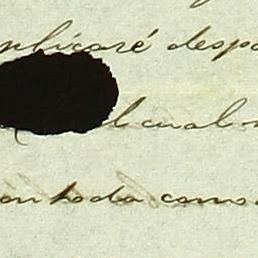 plicaré despa
l cual
on toda como